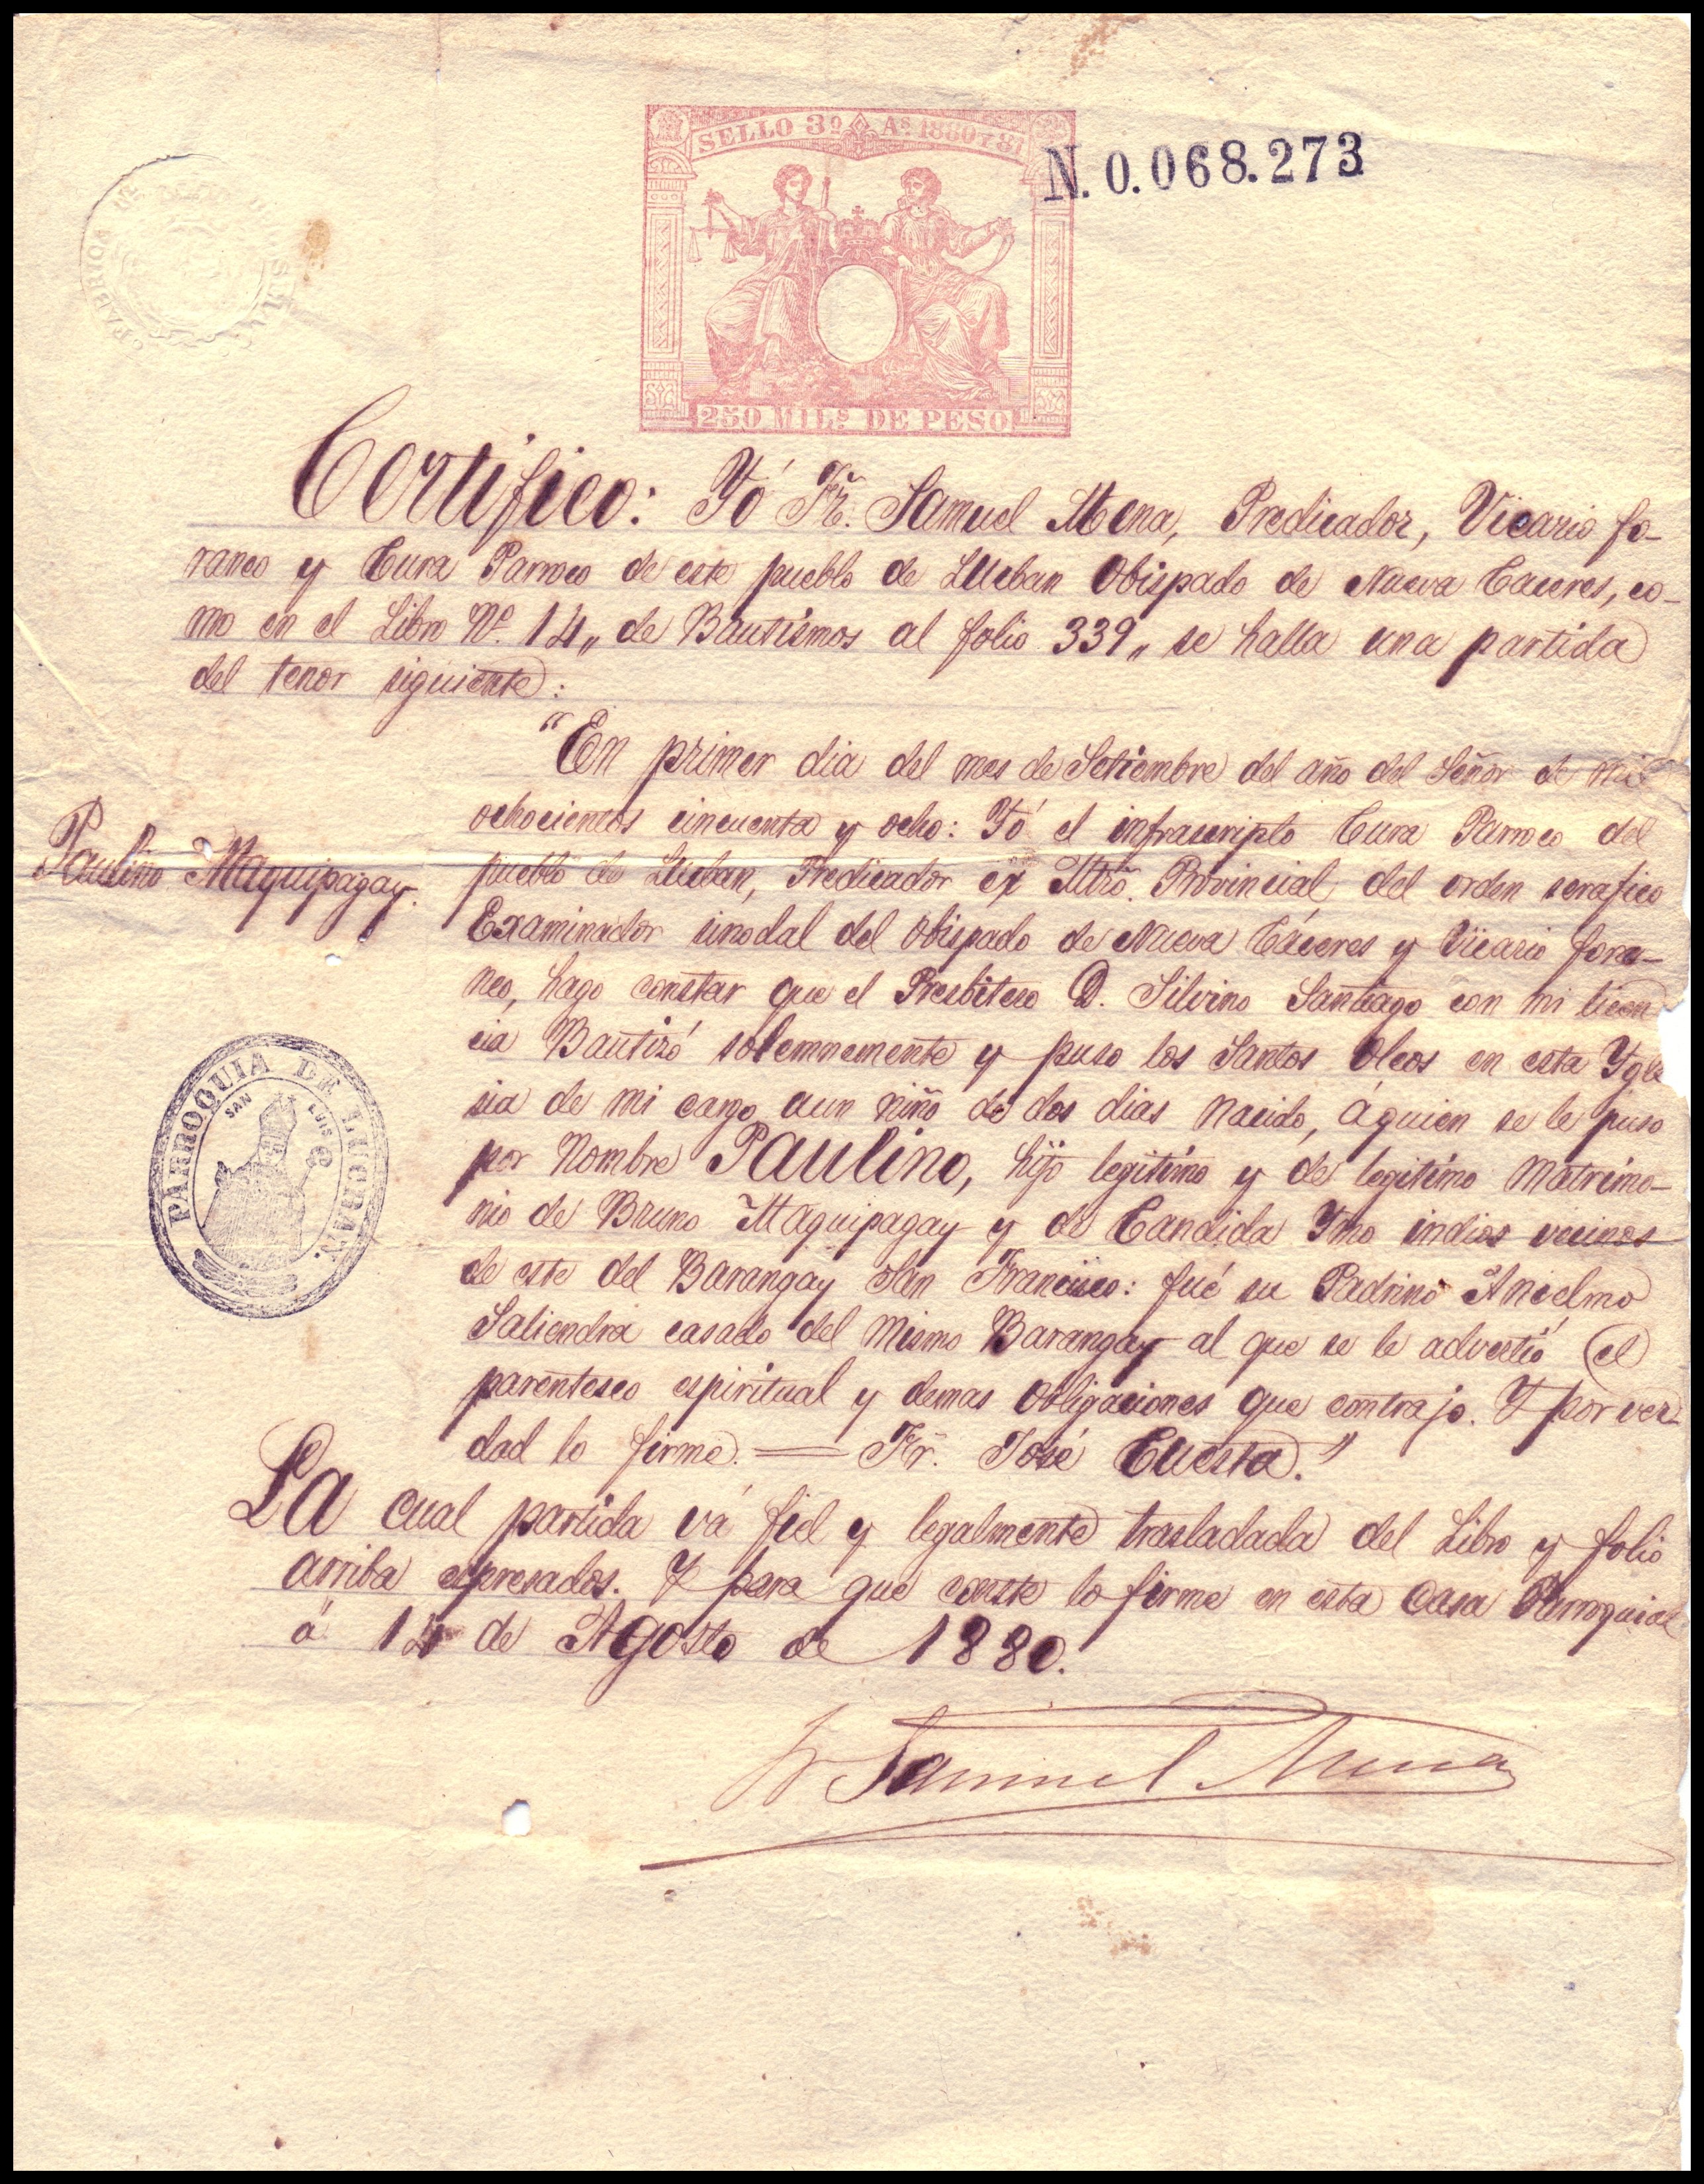 SELLO 3º Aˢ 1880 Y 81
N. 0.068.273
250 MILˢ DE PESO
Certifico: Yó Fr. Samuel Mena, Predicador, Vicario fo-
raneo y Cura Parroco de este pueblo de Lucban Obispado de Nueva Caceres, co-
mo en el Libro Nº. 14,, de Bautismos al folio 339,, se halla una partida
del tenor siguiente:
"En primer dia del mes de Setiembre del año del Señor de mil
ochocientos cincuenta y ocho: Yó el infrascripto Cura Parroco del
Paulino Maquipagay.
pueblo de Lucban, Predicador ex Mtrõ. Provincial del orden serafico
Examinador sinodal del Obispado de Nueva Cáceres y Vicario fora-
neo, hago constar que el Presbitero D. Silvino Santiago con mi licen
cia Bautizó solemnemente y puso los Santos Oleos en esta Ygle
sia de mi cargo aun niño de dos dias nacido, áquien se le puso
por Nombre Paulino, hijo legitimo y de legitimo matrimo-
nio de Bruno Maquipagay y de Candida Yno indios vecinos
de este del Barangay San Francisco: fué su Padrino Anselmo
Saliendra casado del mismo Barangay al que se le advertió el
parentesco espiritual y demas obligaciones que contrajo. Y por ver-
dad lo firmé. = Fr. José Cuesta."
PARROQUIA DE LUCBAN.
SAN LUIS
La cual partida vá fiel y legalmente trasladada del Libro y folio
arriba espresados. Y para que conste lo firme en esta Casa Parroquial
á 14 de Agosto de 1880.
Fr Samuel Mena